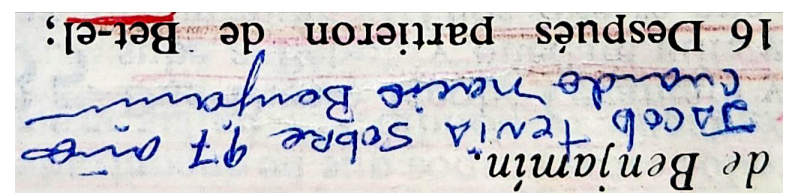 de Benjamín.
Jacob Tenía sobre 97 años
cuando nació Benjamin
16 Después partieron de Bet-el;